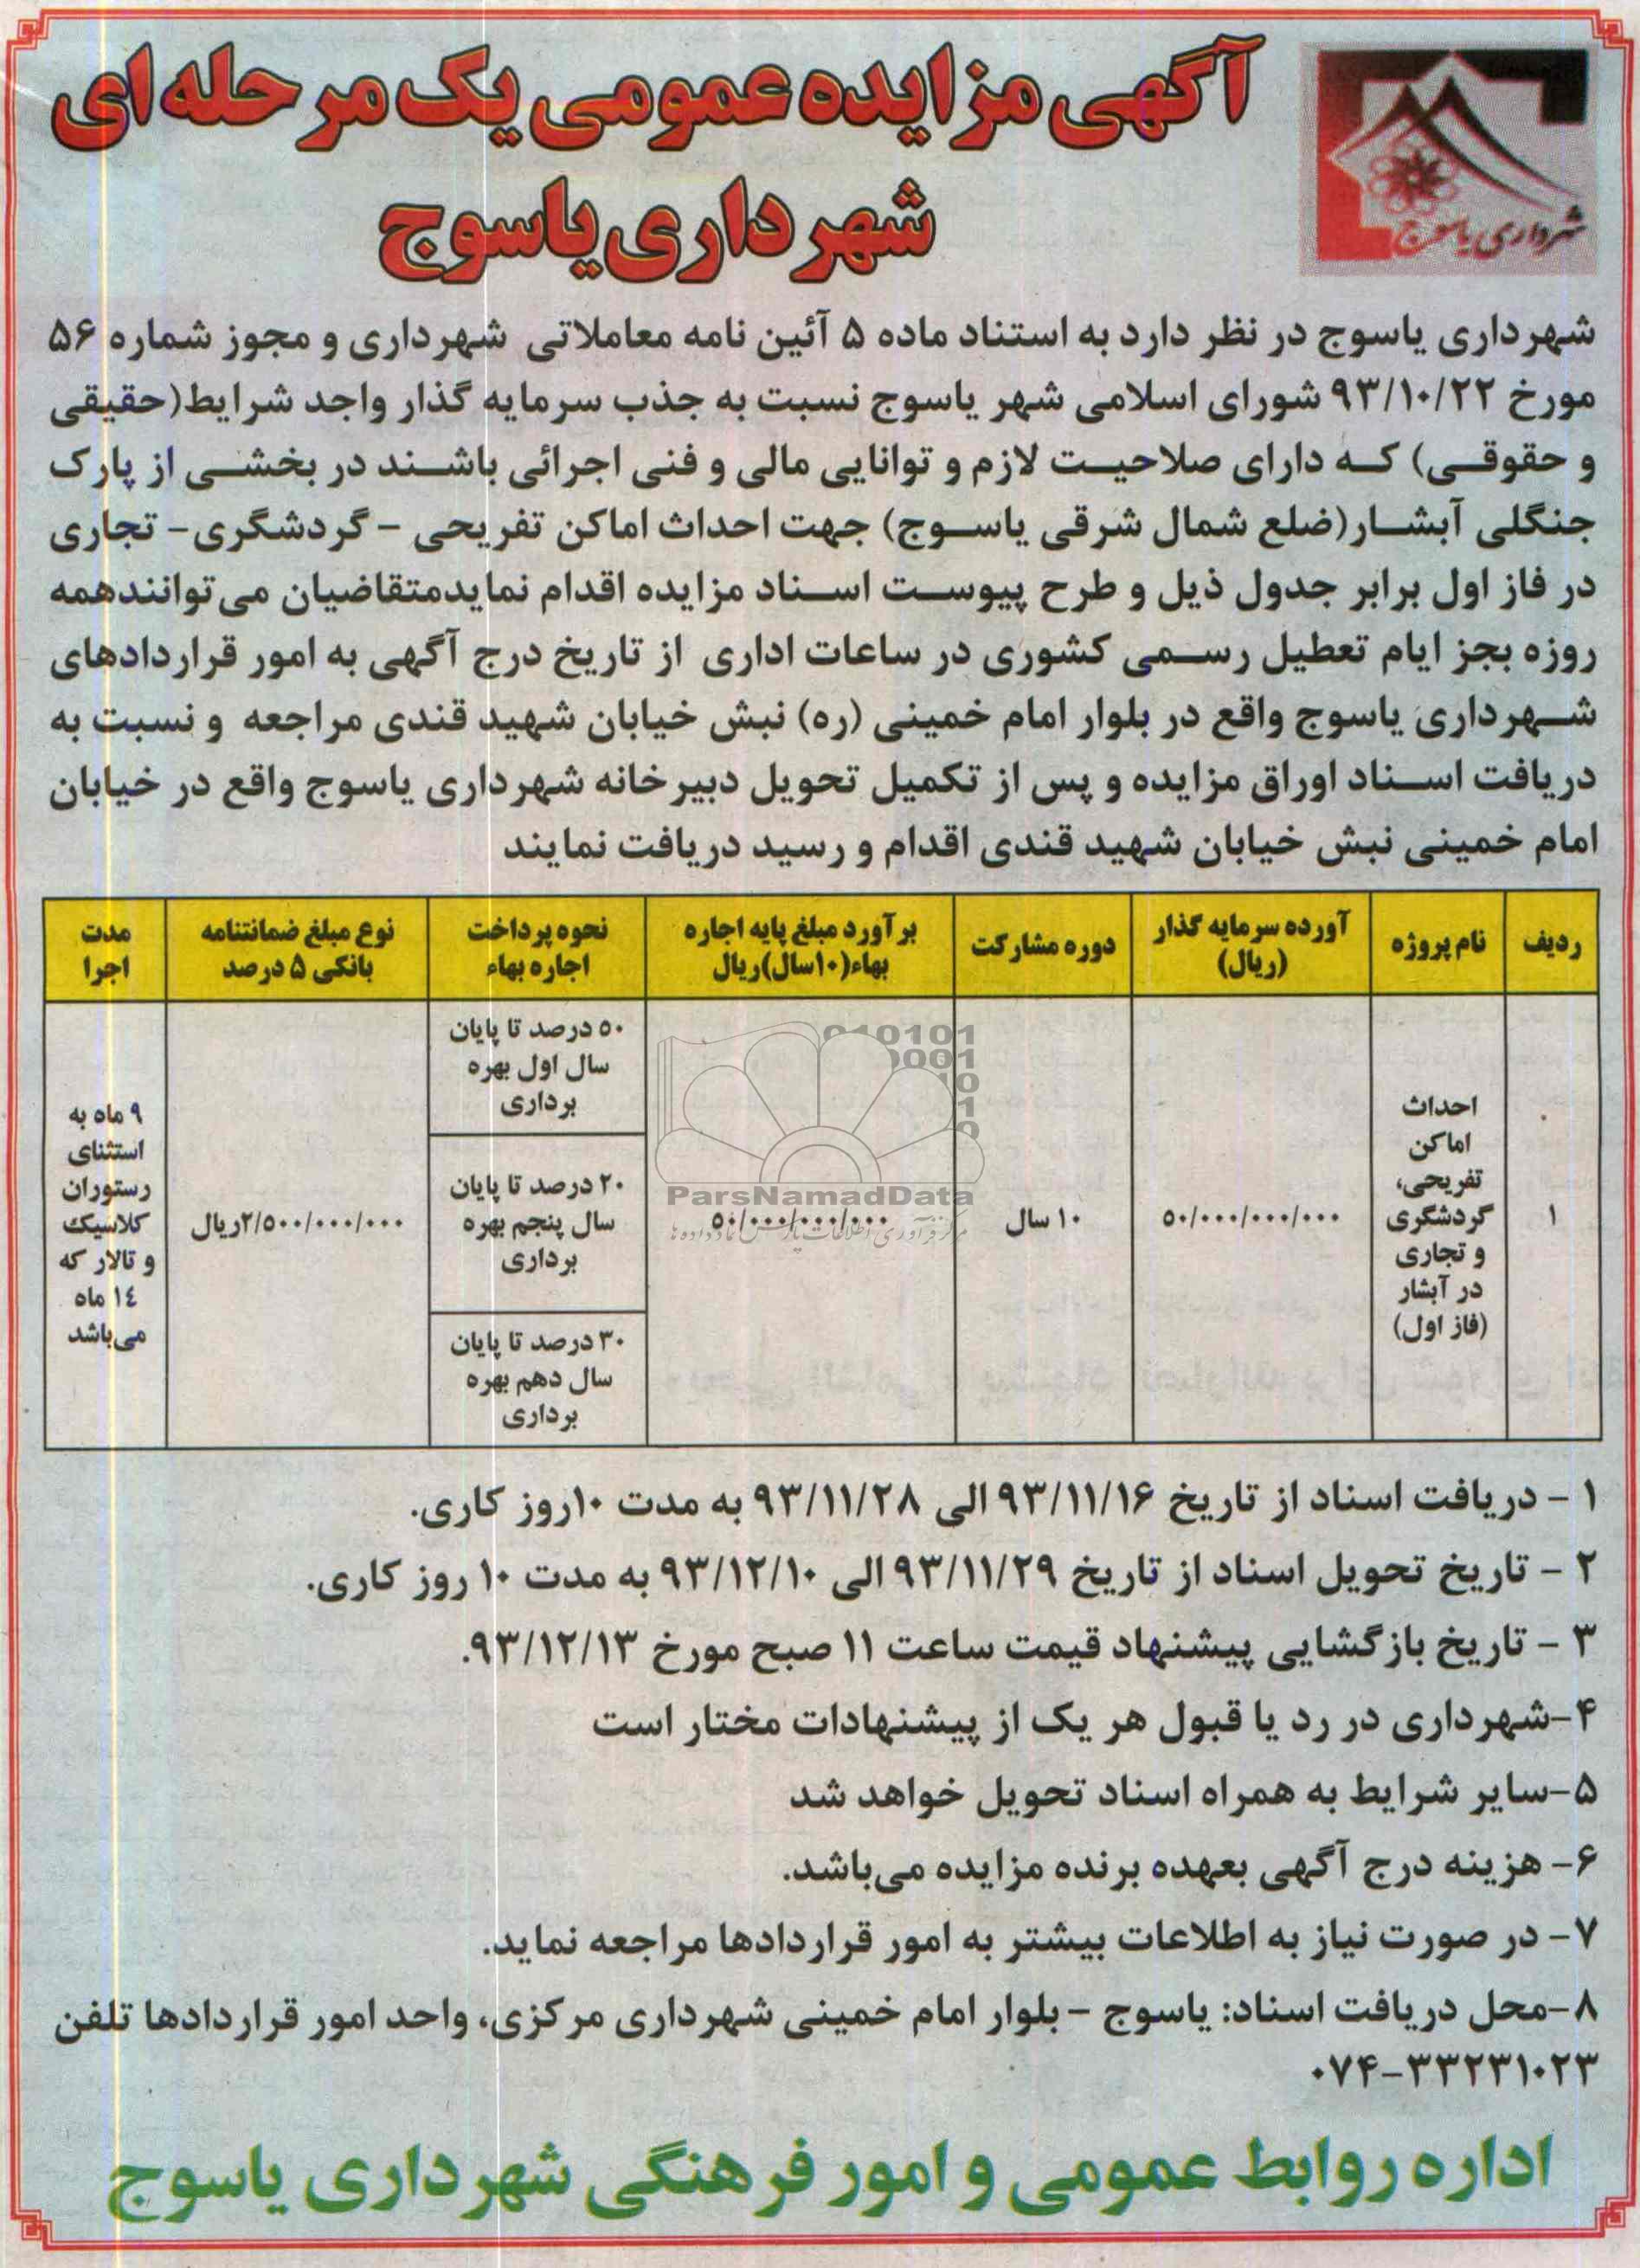 آگهی مزایده عمومی یک مرحله ای
شهرداری یاسوج
شهرداری یاسوج
شهرداری یاسوج در نظر دارد به استناد ماده ۵ آئین نامه معاملاتی شهرداری و مجوز شماره ۵۶
مورخ ۹۳/۱۰/۲۲ شورای اسلامی شهر یاسوج نسبت به جذب سرمایه گذار واجد شرایط(حقیقی
و حقوقی) که دارای صلاحیت لازم و توانایی مالی و فنی اجرائی باشند در بخشی از پارک
جنگلی آبشار(ضلع شمال شرقی یاسوج) جهت احداث اماکن تفریحی - گردشگری- تجاری
در فاز اول برابر جدول ذیل و طرح پیوست اسناد مزایده اقدام نمایدمتقاضیان می توانندهمه
روزه بجز ایام تعطیل رسمی کشوری در ساعات اداری از تاریخ درج آگهی به امور قراردادهای
شهرداری یاسوج واقع در بلوار امام خمینی (ره) نبش خیابان شهید قندی مراجعه و نسبت به
دریافت اسناد اوراق مزایده و پس از تکمیل تحویل دبیرخانه شهرداری یاسوج واقع در خیابان
امام خمینی نبش خیابان شهید قندی اقدام و رسید دریافت نمایند
ردیف
نام پروژه
آورده سرمایه گذار
(ریال)
دوره مشارکت
برآورد مبلغ پایه اجاره
بهاء(۱۰سال)ریال
نحوه پرداخت
اجاره بهاء
نوع مبلغ ضمانتنامه
بانکی ۵ درصد
مدت
اجرا
۱
احداث
اماکن
تفریحی،
گردشگری
و تجاری
در آبشار
(فاز اول)
۵۰/۰۰۰/۰۰۰/۰۰۰
۱۰ سال
۵۰/۰۰۰/۰۰۰/۰۰۰
۵۰ درصد تا پایان
سال اول بهره
برداری
۲۰ درصد تا پایان
سال پنجم بهره
برداری
۳۰ درصد تا پایان
سال دهم بهره
برداری
۲/۵۰۰/۰۰۰/۰۰۰ریال
۹ ماه به
استثنای
رستوران
کلاسیک
و تالار که
۱٤ ماه
می‌باشد
ParsNamadData
۱ - دریافت اسناد از تاریخ ۹۳/۱۱/۱۶ الی ۹۳/۱۱/۲۸ به مدت ۱۰روز کاری.
۲ - تاریخ تحویل اسناد از تاریخ ۹۳/۱۱/۲۹ الی ۹۳/۱۲/۱۰ به مدت ۱۰ روز کاری.
۳ - تاریخ بازگشایی پیشنهاد قیمت ساعت ۱۱ صبح مورخ ۹۳/۱۲/۱۳.
۴-شهرداری در رد یا قبول هر یک از پیشنهادات مختار است
۵-سایر شرایط به همراه اسناد تحویل خواهد شد
۶- هزینه درج آگهی بعهده برنده مزایده می‌باشد.
۷- در صورت نیاز به اطلاعات بیشتر به امور قراردادها مراجعه نماید.
۸-محل دریافت اسناد: یاسوج - بلوار امام خمینی شهرداری مرکزی، واحد امور قراردادها تلفن
۰۷۴-۳۳۲۳۱۰۲۳
اداره روابط عمومی و امور فرهنگی شهرداری یاسوج